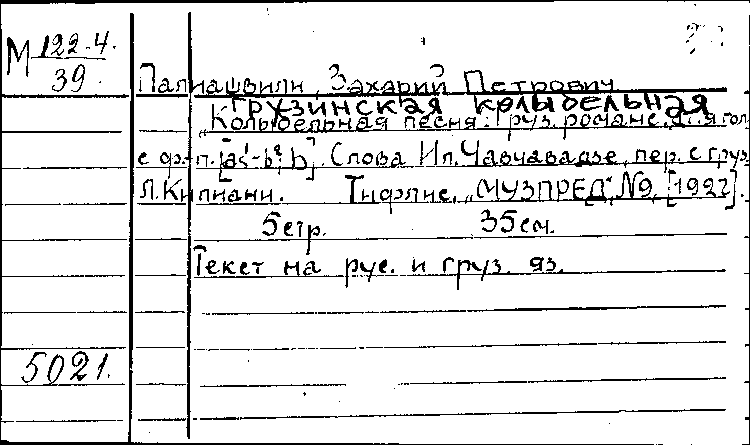 М 122-4.
39.
Палиашвили, Захарий Петрович
Грузинская колыбельная
"Колыбельная песня. Груз. романс для гол.
с фп. [as¹-b², b]. Слова Ил. Чавчавадзе, пер. с груз.
Л. Кипиани. Тифлис, "МУЗПРЕД", № 9, [1927].
5 стр. 35 см.
Текст на рус. и груз. яз.
5021.